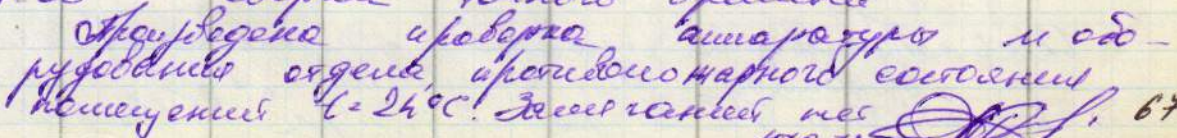 Произведена проверка аппаратуры и обо-
рудования отдела, противопожарного состояния
помещений t=24°С. Замечаний нет 67